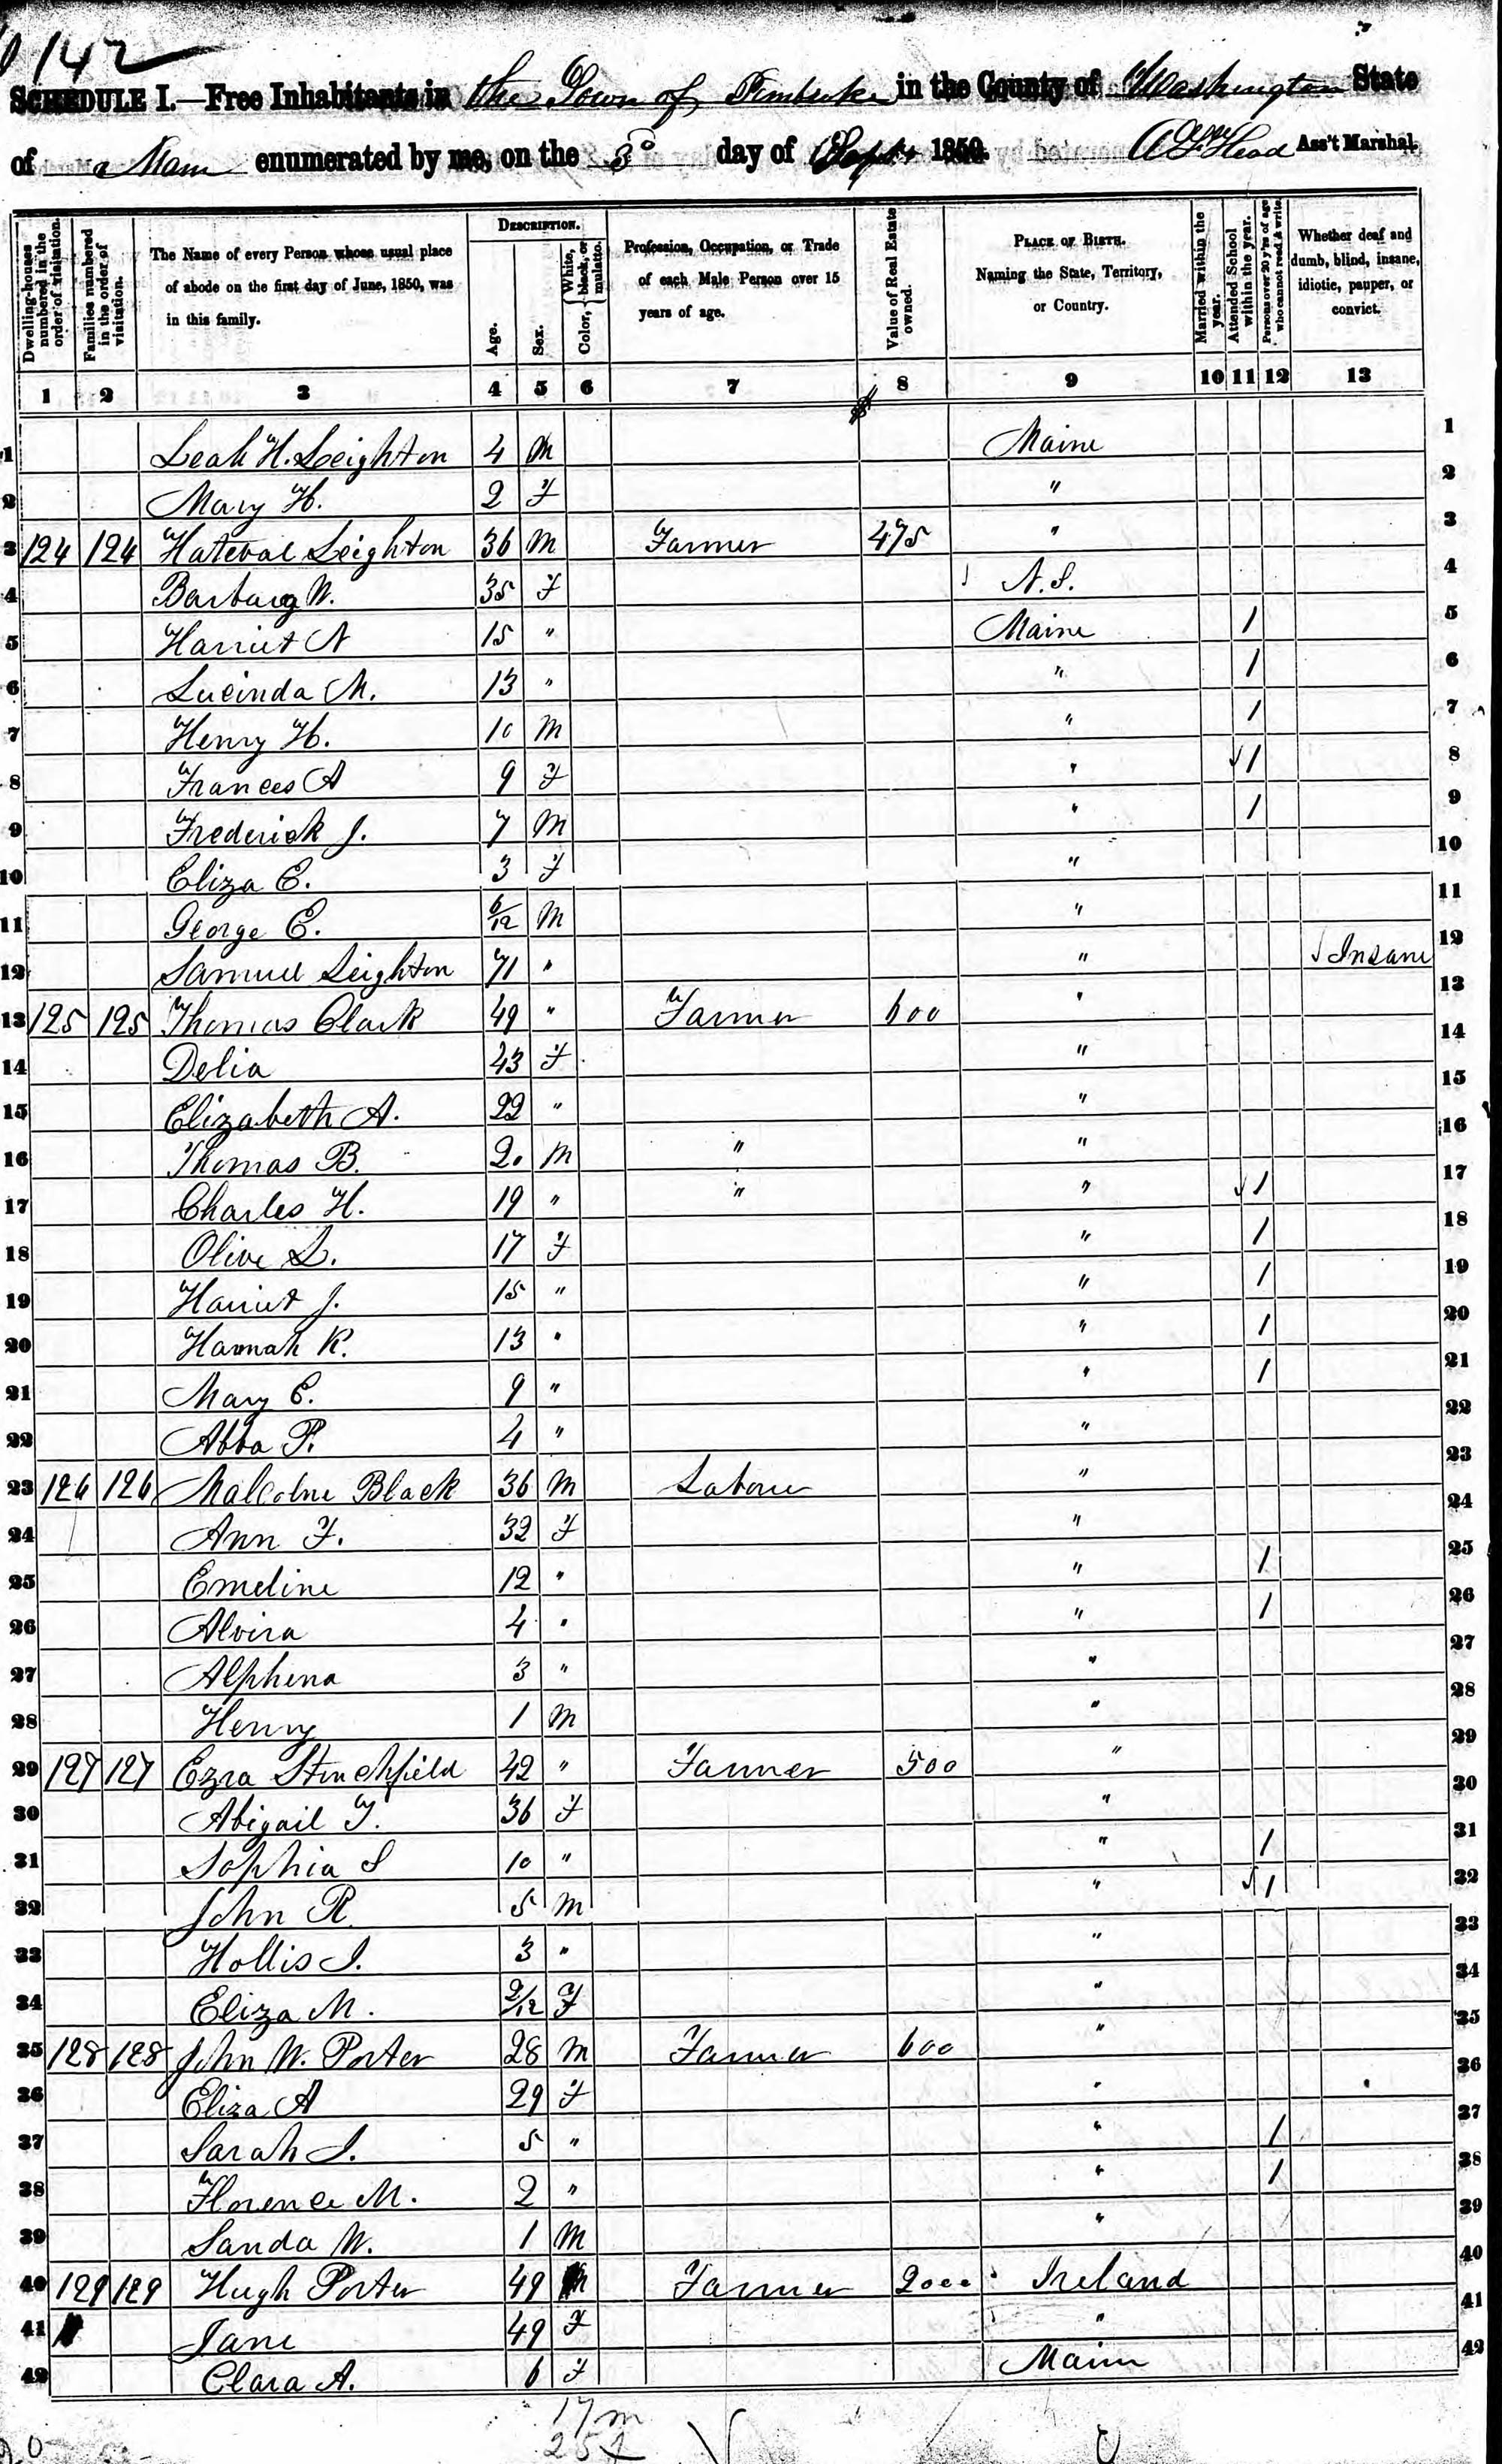 142
SCHEDULE I.—Free Inhabitants in the Town of Pembroke in the County of Washington State
of Main enumerated by me, on the 3d day of Sept 1850. Ass't Marshal.
Dwelling-houses numbered in the order of visitation.
Families numbered in the order of visitation.
The Name of every Person whose usual place of abode on the first day of June, 1850, was in this family.
DESCRIPTION.
Age.
Sex.
Color, { White, black, or mulatto.
Profession, Occupation, or Trade of each Male Person over 15 years of age.
Value of Real Estate owned.
PLACE OF BIRTH. Naming the State, Territory, or Country.
Married within the year.
Attended School within the year.
Persons over 20 y'rs of age who cannot read & write.
Whether deaf and dumb, blind, insane, idiotic, pauper, or convict.
1 2 3 4 5 6 7 8 9 10 11 12 13
$
1 Leah H. Leighton 4 M Maine 1
2 Mary H. 2 F " 2
3 124 124 Hateval Leighton 36 M Farmer 475 " 3
4 W. 35 F N.S. 4
5 Harriet N 15 " Maine 1 5
6 Lucinda M. 13 " " 1 6
7 Henry H. 10 M " 1 7
8 Frances A 9 F " √ 1 8
9 Frederick J. 7 M " 1 9
10 Eliza E. 3 F " 10
11 George E. 6/12 M " 11
12 Samuel Leighton 71 " " √ Insane 12
13 125 125 Thomas Clark 49 " Farmer 600 " 13
14 Delia 43 F " 14
15 Elizabeth A. 22 " " 15
16 Thomas B. 20 M " " 16
17 Charles H. 19 " " " √ 1 17
18 Olive L. 17 F " 1 18
19 Harriet J. 15 " " 1 19
20 Hannah K. 13 " " 1 20
21 Mary E. 9 " " 1 21
22 Abba P. 4 " " 22
23 126 126 Malcolm Black 36 M Labour " 23
24 Ann F. 32 F " 24
25 Emeline 12 " " 1 25
26 Alvira 4 " " 1 26
27 Alphena 3 " " 27
28 Henry 1 M " 28
29 127 127 Ezra Stinchfield 42 " Farmer 500 " 29
30 Abigail T. 36 F " 30
31 Sophia S 10 " " 1 31
32 John R. 5 M " √ 1 32
33 Hollis J. 3 " " 33
34 Eliza M. 2/12 F " 34
35 128 128 John W. Porter 28 M Farmer 600 " 35
36 Eliza A 29 F " 36
37 Sarah J. 5 " " 1 37
38 Florence M. 2 " " 1 38
39 Sanda W. 1 M " 39
40 129 129 Hugh Porter 49 M Farmer 2000 Ireland 40
41 Jane 49 F " 41
42 Clara A. 6 F Maine 42
17 m
25 f